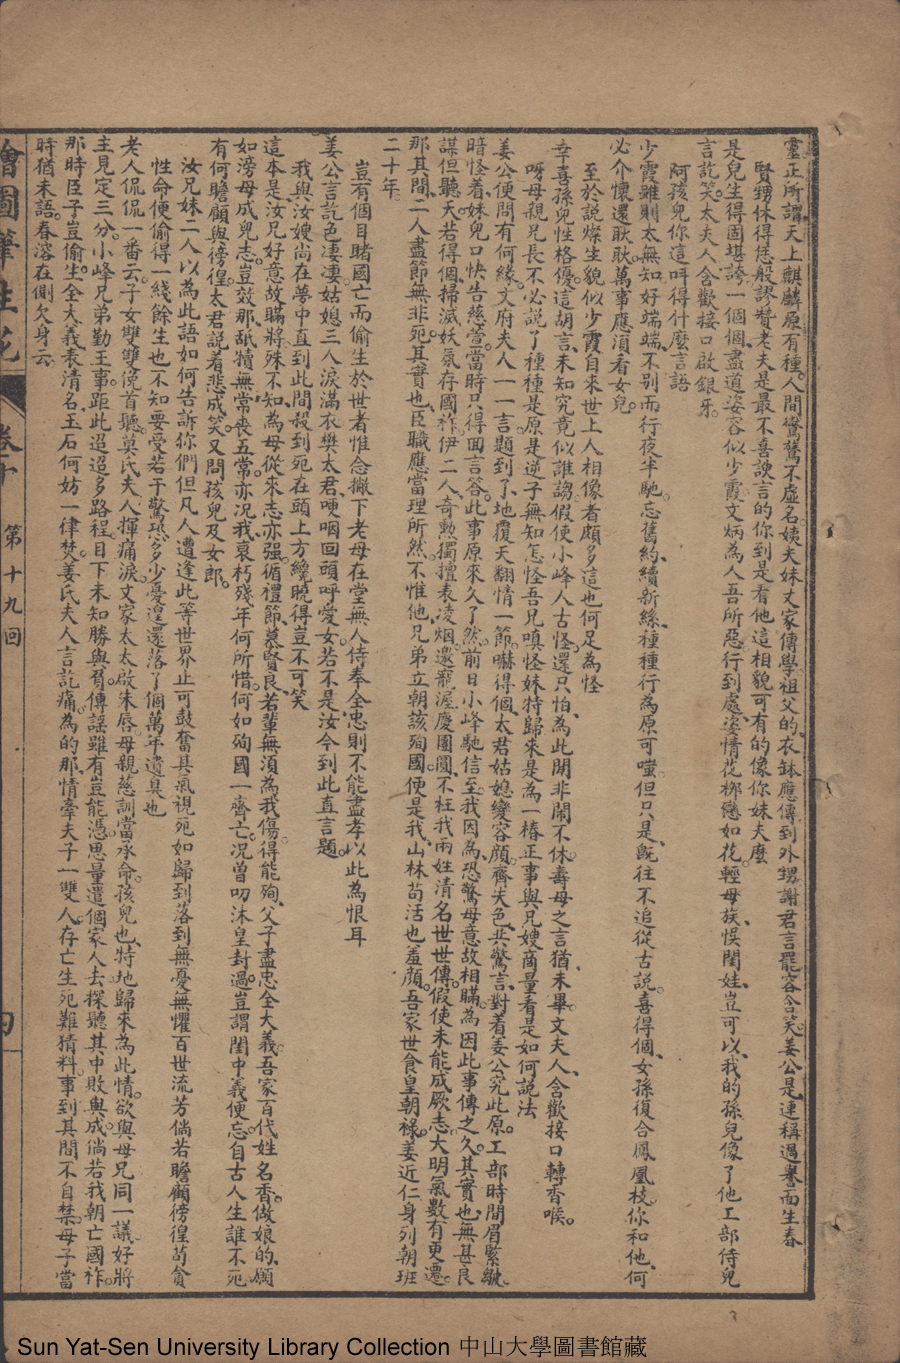 靈正所謂天上麒麟原有種人間鸑鷟不虛名姨夫妹丈家傳學祖父的衣缽應傳到外甥謝君言罷容含笑姜公是連稱過譽而生春
賢甥休得恁般謬贊老夫是最不喜諛言的你到是看他這相貌可有的像你妹夫麼
是兒生得固堪誇一個個盡道姿容似少霞文炳為人吾所惡行到處姿情花柳戀如花輕母族悞閨娃豈可以我的孫兒像了他工部侍兒
言訖笑太夫人含歡接口啟銀牙
阿孩兒你這吽得什麼言語
少霞雖則太無知好端端不别而行夜半馳忘舊約續新絲種種行為原可嗤但只是既往不追從古説喜得個女孫復合鳳凰枝你和他何
必介懷還耿耿萬事應須看女兒
至於説燦生貌似少霞自來世上人相像者頗多這也何足為怪
幸喜孫兒性格優這胡言未知究竟似誰謅假使小峰人古怪還只怕為此閒非鬧不休壽母之言猶未畢文夫人含歡接口轉香喉
呀母親兄長不必説了種種是原是逆子無知怎怪吾兄嗔怪妹特歸來是為一樁正事與兄嫂商量看是如何説法
姜公便問有何緣文府夫人一一言題到了地覆天翻情一節嚇得個太君姑媳變容顔齊失色共驚言對着姜公究此原工部時間眉緊皺
暗怪着妹兒口快告慈萱當時只得回言答此事原來久了然前日小峰馳信至我因為恐驚母意故相瞞為因此事傳之久其實也無甚良
謀但聽天若得個掃滅妖氛存國祚伊二人奇勲獨擅表凌烟邀寵渥慶團圓不枉我兩姓清名世世傳假使未能成厥志大明氣數有更遷
那其間二人盡節無非死其實也臣職應當理所然不惟他兄弟立朝該殉國便是我山林茍活也羞顔吾家世食皇朝祿姜近仁身列朝班
二十年
豈有個目睹國亡而偷生於世者惟念撇下老母在堂無人侍奉全忠則不能盡孝以此為恨耳
姜公言訖色凄凄姑媳三人淚滿衣樊太君哽咽回頭呼愛女若不是汝今到此直言題
我與汝嫂尚在夢中直到此間殺到死在頭上方纔曉得豈不可笑
這本是汝兄好意故瞞將殊不知為母從來志亦强循禮節慕賢良若輩無須為我傷得能殉父子盡忠全大義吾家百代姓名香做娘的願
如滂母成兒志豈效那舐犢無常喪五常亦況我哀朽殘年何所惜何如殉國一齊亡况曾叨沐皇封過豈謂閨中義便忘自古人生誰不死
有何瞻顧與徬徨太君説着悲成笑又問孩兒及女郎
汝兄妹二人以為此語如何告訴你們但凡人遭逢此等世界止可鼓奮具氣視死如歸到落到無憂無懼百世流芳倘若瞻顧徬徨茍貪
性命便偷得一綫餘生也不知要受若干驚恐多少憂遑還落了個萬年遺臭也
老人侃侃一番云子女雙雙俛首聽莫氏夫人揮痛淚文家太太啟朱唇母親慈訓當承命孩兒也特地歸來為此情欲與母兄同一議好將
主見定三分小峰兄弟勤王事距此迢迢多路程目下未知勝與負傳謡雖有豈能憑思量遣個家人去探聽其中敗與成倘若我朝亡國祚
那時臣子豈偷生全大義表清名玉石何妨一律焚姜氏夫人言訖痛為的那情牽夫子一雙人存亡生死難猜料事到其間不自禁母子當
時猶未語春溶在側欠身云
繪圖筆生花
卷十
第十九回
Sun Yat-Sen University Library Collection 中山大學圖書館藏